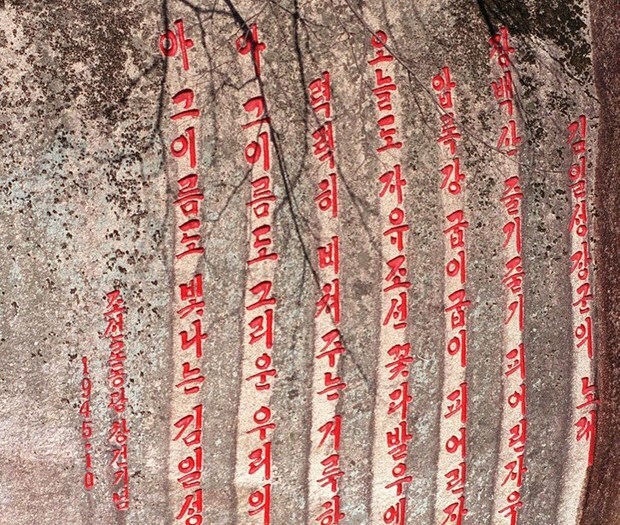 김일성장군의 노래
장백산 줄기줄기 피어린자욱
압록강 굽이굽이 피어린자
오늘도 자유조선 꽃다발우에
력력히 비쳐주는 거룩한
아 그이름도 그리운 우리의
아 그이름도 빛나는 김일성
조선로동당 창건기념
1945.10